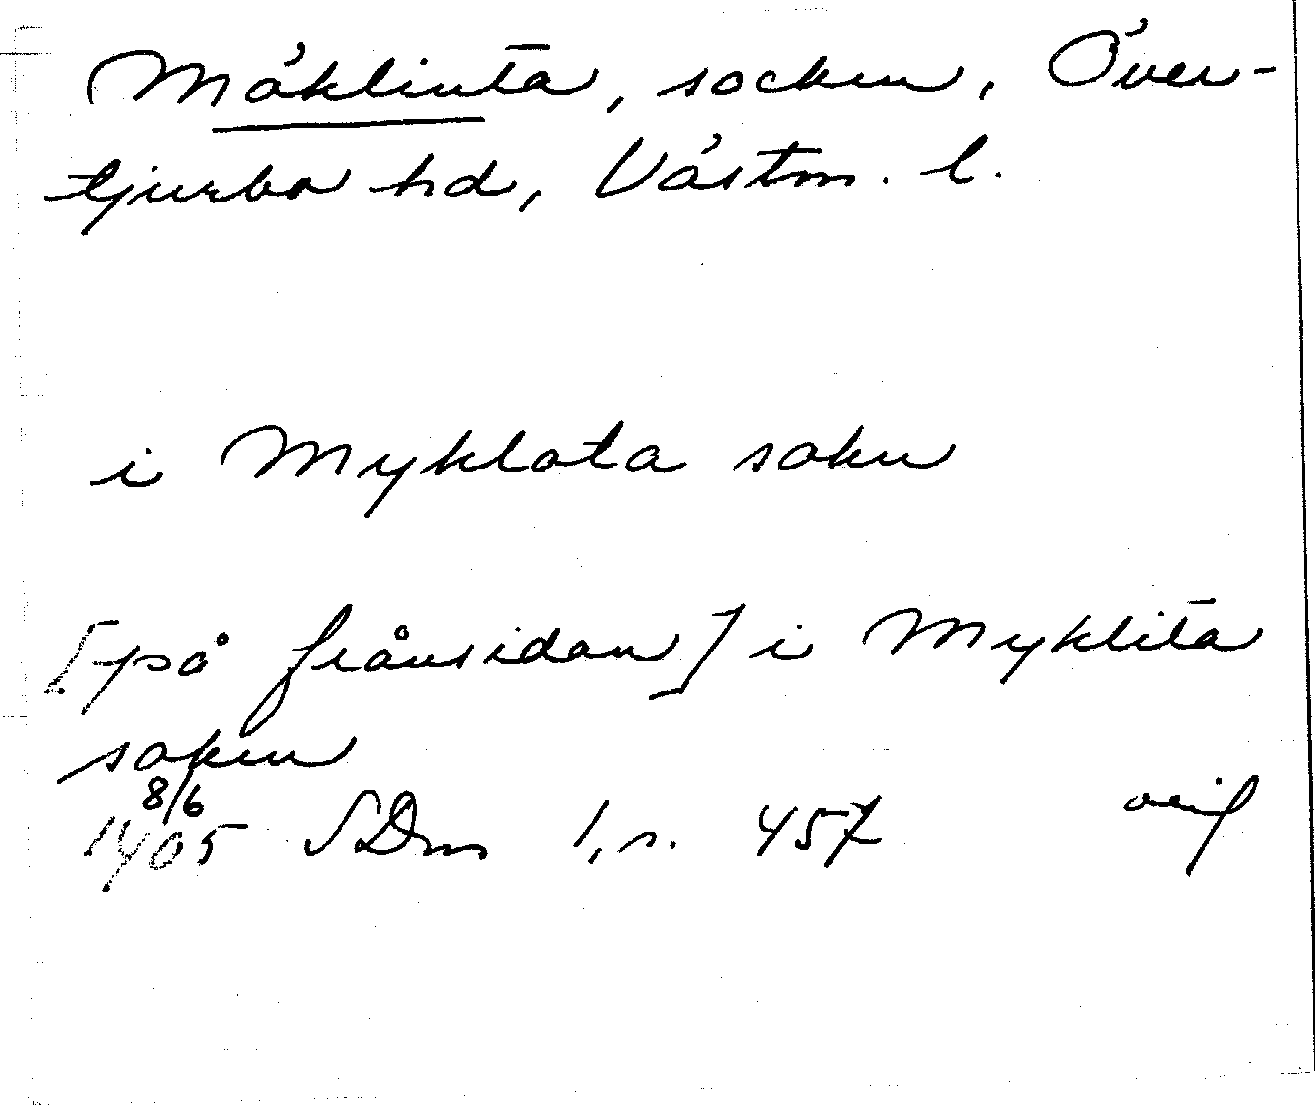 Möklinta, socken, Över-
tjurbo hd, Västm. l.
i Myklota sokn
[på frånsidan] i Myklita
sokn
8/6
1405 SDns 1, s. 457 orig